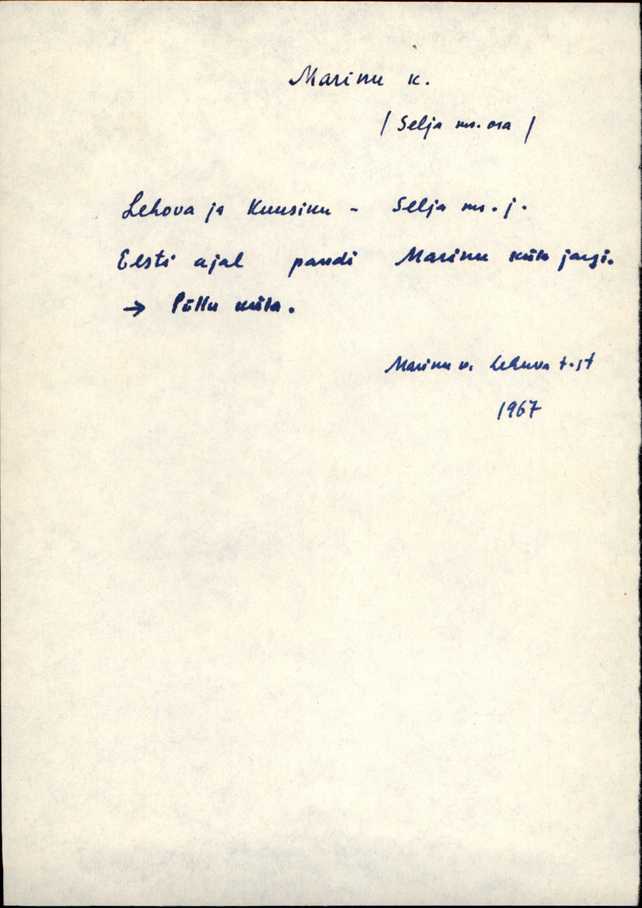 Marinu k.
/ Selja ms. osa /
Lehova ja Kuusinu - Selja ms. j.
Eesti ajal pandi Marinu küla järgi.
→ Põllu küla.
Marinu k. Lehuva t. st
1967